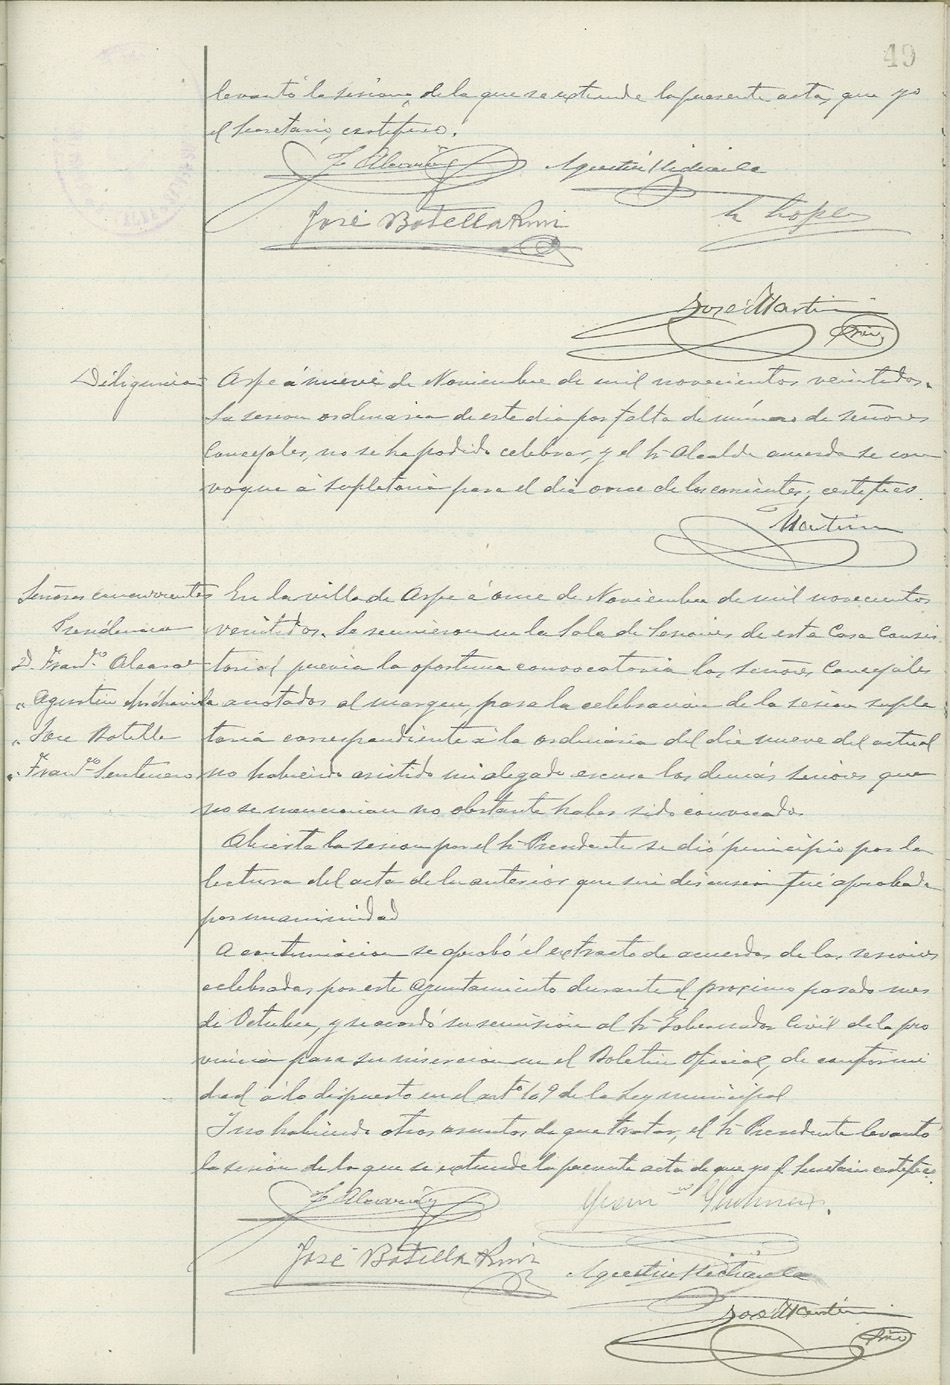 49
levantó la sesion, de la que se extiende la presente acta, que yo
el Secretario, certifico.
Agustin Michavila
José Botella Rmi
José Martin
Diligencia
Aspe á nueve de Noviembre de mil novecientos veintidos.
La sesion ordinaria de este dia por falta de número de señores
Concejales, no se ha podido celebrar, y el Sr Alcalde acuerda se con
voque á supletoria para el dia once de los corrientes; certifico.
Martin
Señores concurrentes
Presidencia
D. Franco Alcaraz
" Agustin Michavila
" José Botella
" Franco Santonero
En la villa de Aspe á once de Noviembre de mil novecientos
veintidos. Se reunieron en la Sala de Sesiones de esta Casa Consis
torial previa la oportuna convocatoria los señores Concejales
anotados al margen, para la celebración de la sesion suple
toria correspondiente á la ordinaria del dia nueve del actual
no habiendo asistido ni alegado escusa los demás señores que
no se mencionan no obstante haber sido convocados.
Abierta la sesion por el Sr Presidente se dió principio por la
lectura del acta de la anterior que sin discusion fué aprobada
por unanimidad
A continuacion se aprobó el extracto de acuerdos de las sesiones
celebradas por este Ayuntamiento durante el proximo pasado mes
de Octubre, y se acordó su remisión al Sr Gobernador Civil de la pro
vincia para su insercion en el Boletin Oficial, de conformi
dad á lo dispuesto en el arto 109 de la Ley municipal
Y no habiendo otros asuntos de que tratar, el Sr Presidente levantó
la sesión de la que se extiende la presente acta de que yo el Secretario certifico.
José Botella Rmi
Agustin Michavila
José Martin